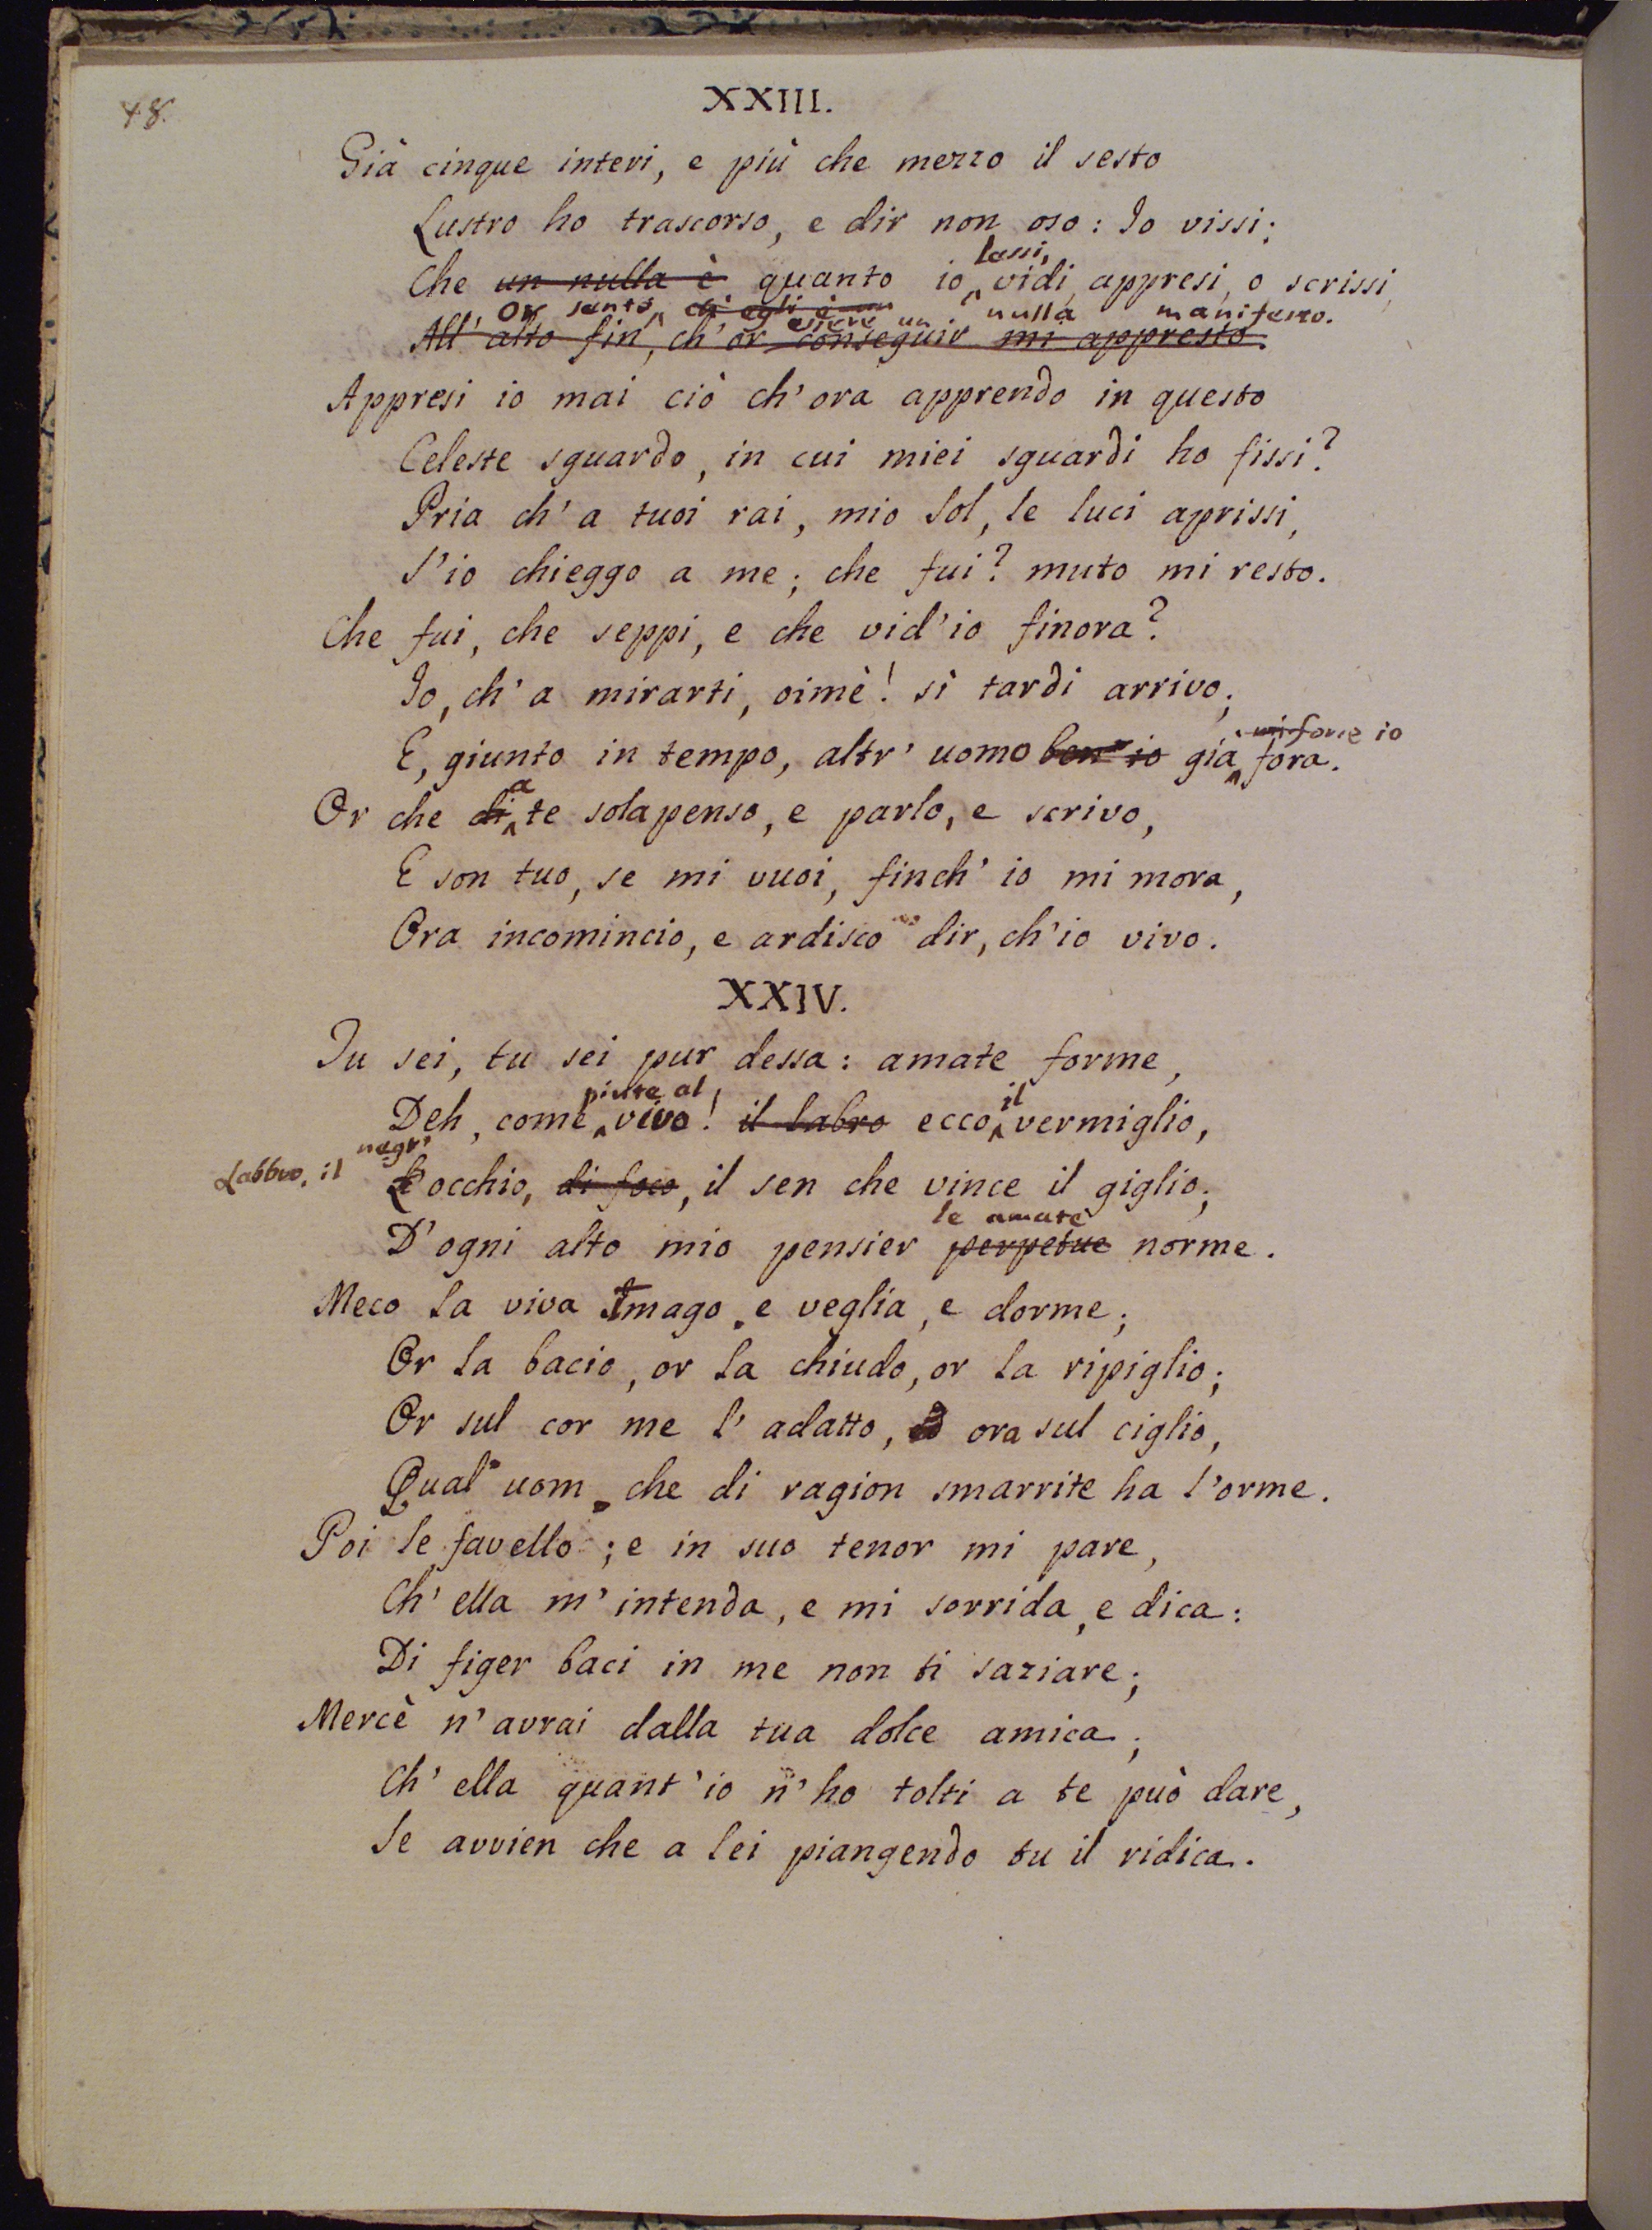 48.
XXIII.
Già cinque interi, e più che mezzo il sesto
Lustro ho trascorso, e dir non oso: Io vissi;
lessi,
Che un nulla è quanto io vidi, appresi, o scrissi,
Or sento, ch'egli è un essere un nulla manifesto.
All' alto fin, ch'or conseguir mi appresto.
Appresi io mai ciò ch'ora apprendo in questo
Celeste sguardo, in cui miei sguardi ho fissi?
Pria ch'a tuoi rai, mio Sol, le luci aprissi,
S'io chieggo a me; che fui? muto mi resto.
Che fui, che seppi, e che vid'io finora?
Io, ch'a mirarti, oimè! sì tardi arrivo;
forse io
E, giunto in tempo, altr' uomo ben io già fora.
a
Or che di te sola penso, e parlo, e scrivo,
E son tuo, se mi vuoi, finch' io mi mora,
Ora incomincio, e ardisco dir, ch'io vivo.
XXIV.
Tu sei, tu sei pur dessa: amate forme,
pinte al il
Deh, come vive! il labro ecco vermiglio,
Labbro, il negr'
L'occhio, di foco, il sen che vince il giglio;
le amate
D'ogni alto mio pensier perpetue norme.
Meco la viva Imago e veglia, e dorme;
Or la bacio, or la chiudo, or la ripiglio;
Or sul cor me l' adatto, ora sul ciglio,
Qual uom, che di ragion smarrite ha l'orme.
Poi le favello; e in suo tenor mi pare,
Ch' ella m' intenda, e mi sorrida, e dica:
Di figer baci in me non ti saziare;
Mercè n' avrai dalla tua dolce amica;
Ch' ella quant'io n'ho tolti a te può dare,
Se avvien che a lei piangendo tu il ridica.